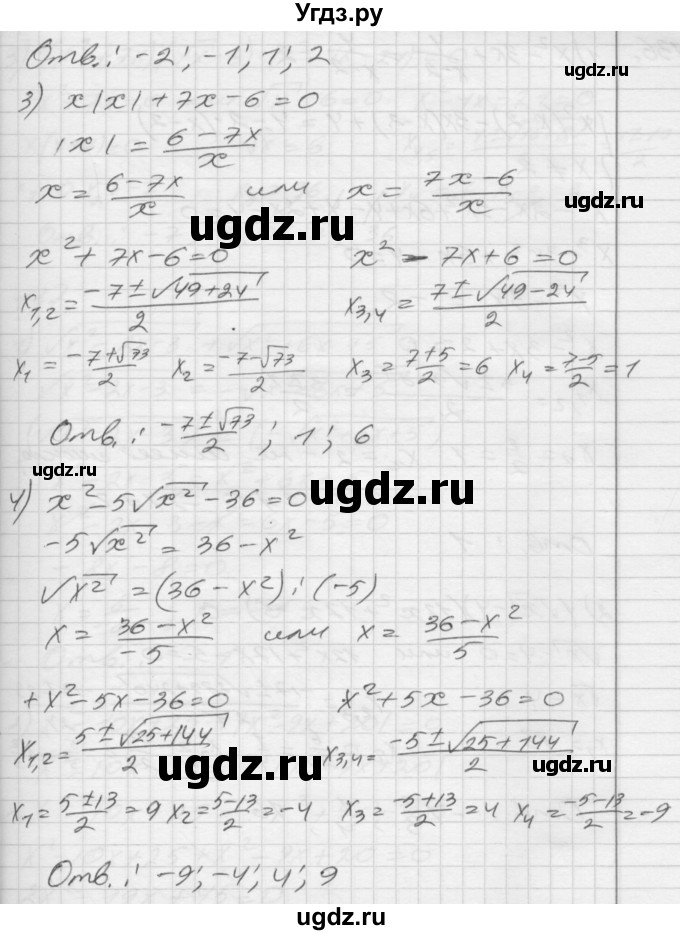 Угдз.ру
Отв.: -2; -1; 1; 2
ugdz.ru
3) x|x| + 7x - 6 = 0
|x| = (6 - 7x)/x
x = (6 - 7x)/x или x = (7x - 6)/x
ugdz.ru
ugdz.ru
x² + 7x - 6 = 0 x² - 7x + 6 = 0
x1,2 = (-7 ± √(49 + 24))/2 x3,4 = (7 ± √(49 - 24))/2
x1 = (-7 + √73)/2 x2 = (-7 - √73)/2 x3 = (7 + 5)/2 = 6 x4 = (7 - 5)/2 = 1
Отв.: (-7 ± √73)/2; 1; 6
ugdz.ru
ugdz.ru
4) x² - 5√x² - 36 = 0
-5√x² = 36 - x²
√x² = (36 - x²) : (-5)
x = (36 - x²)/-5 или x = (36 - x²)/5
ugdz.ru
+x² - 5x - 36 = 0 x² + 5x - 36 = 0
x1,2 = (5 ± √(25 + 144))/2 x3,4 = (-5 ± √(25 + 144))/2
ugdz.ru
ugdz.ru
x1 = (5 ± 13)/2 = 9 x2 = (5 - 13)/2 = -4 x3 = (-5 + 13)/2 = 4 x4 = (-5 - 13)/2 = -9
Отв.: -9; -4; 4; 9
ugdz.ru